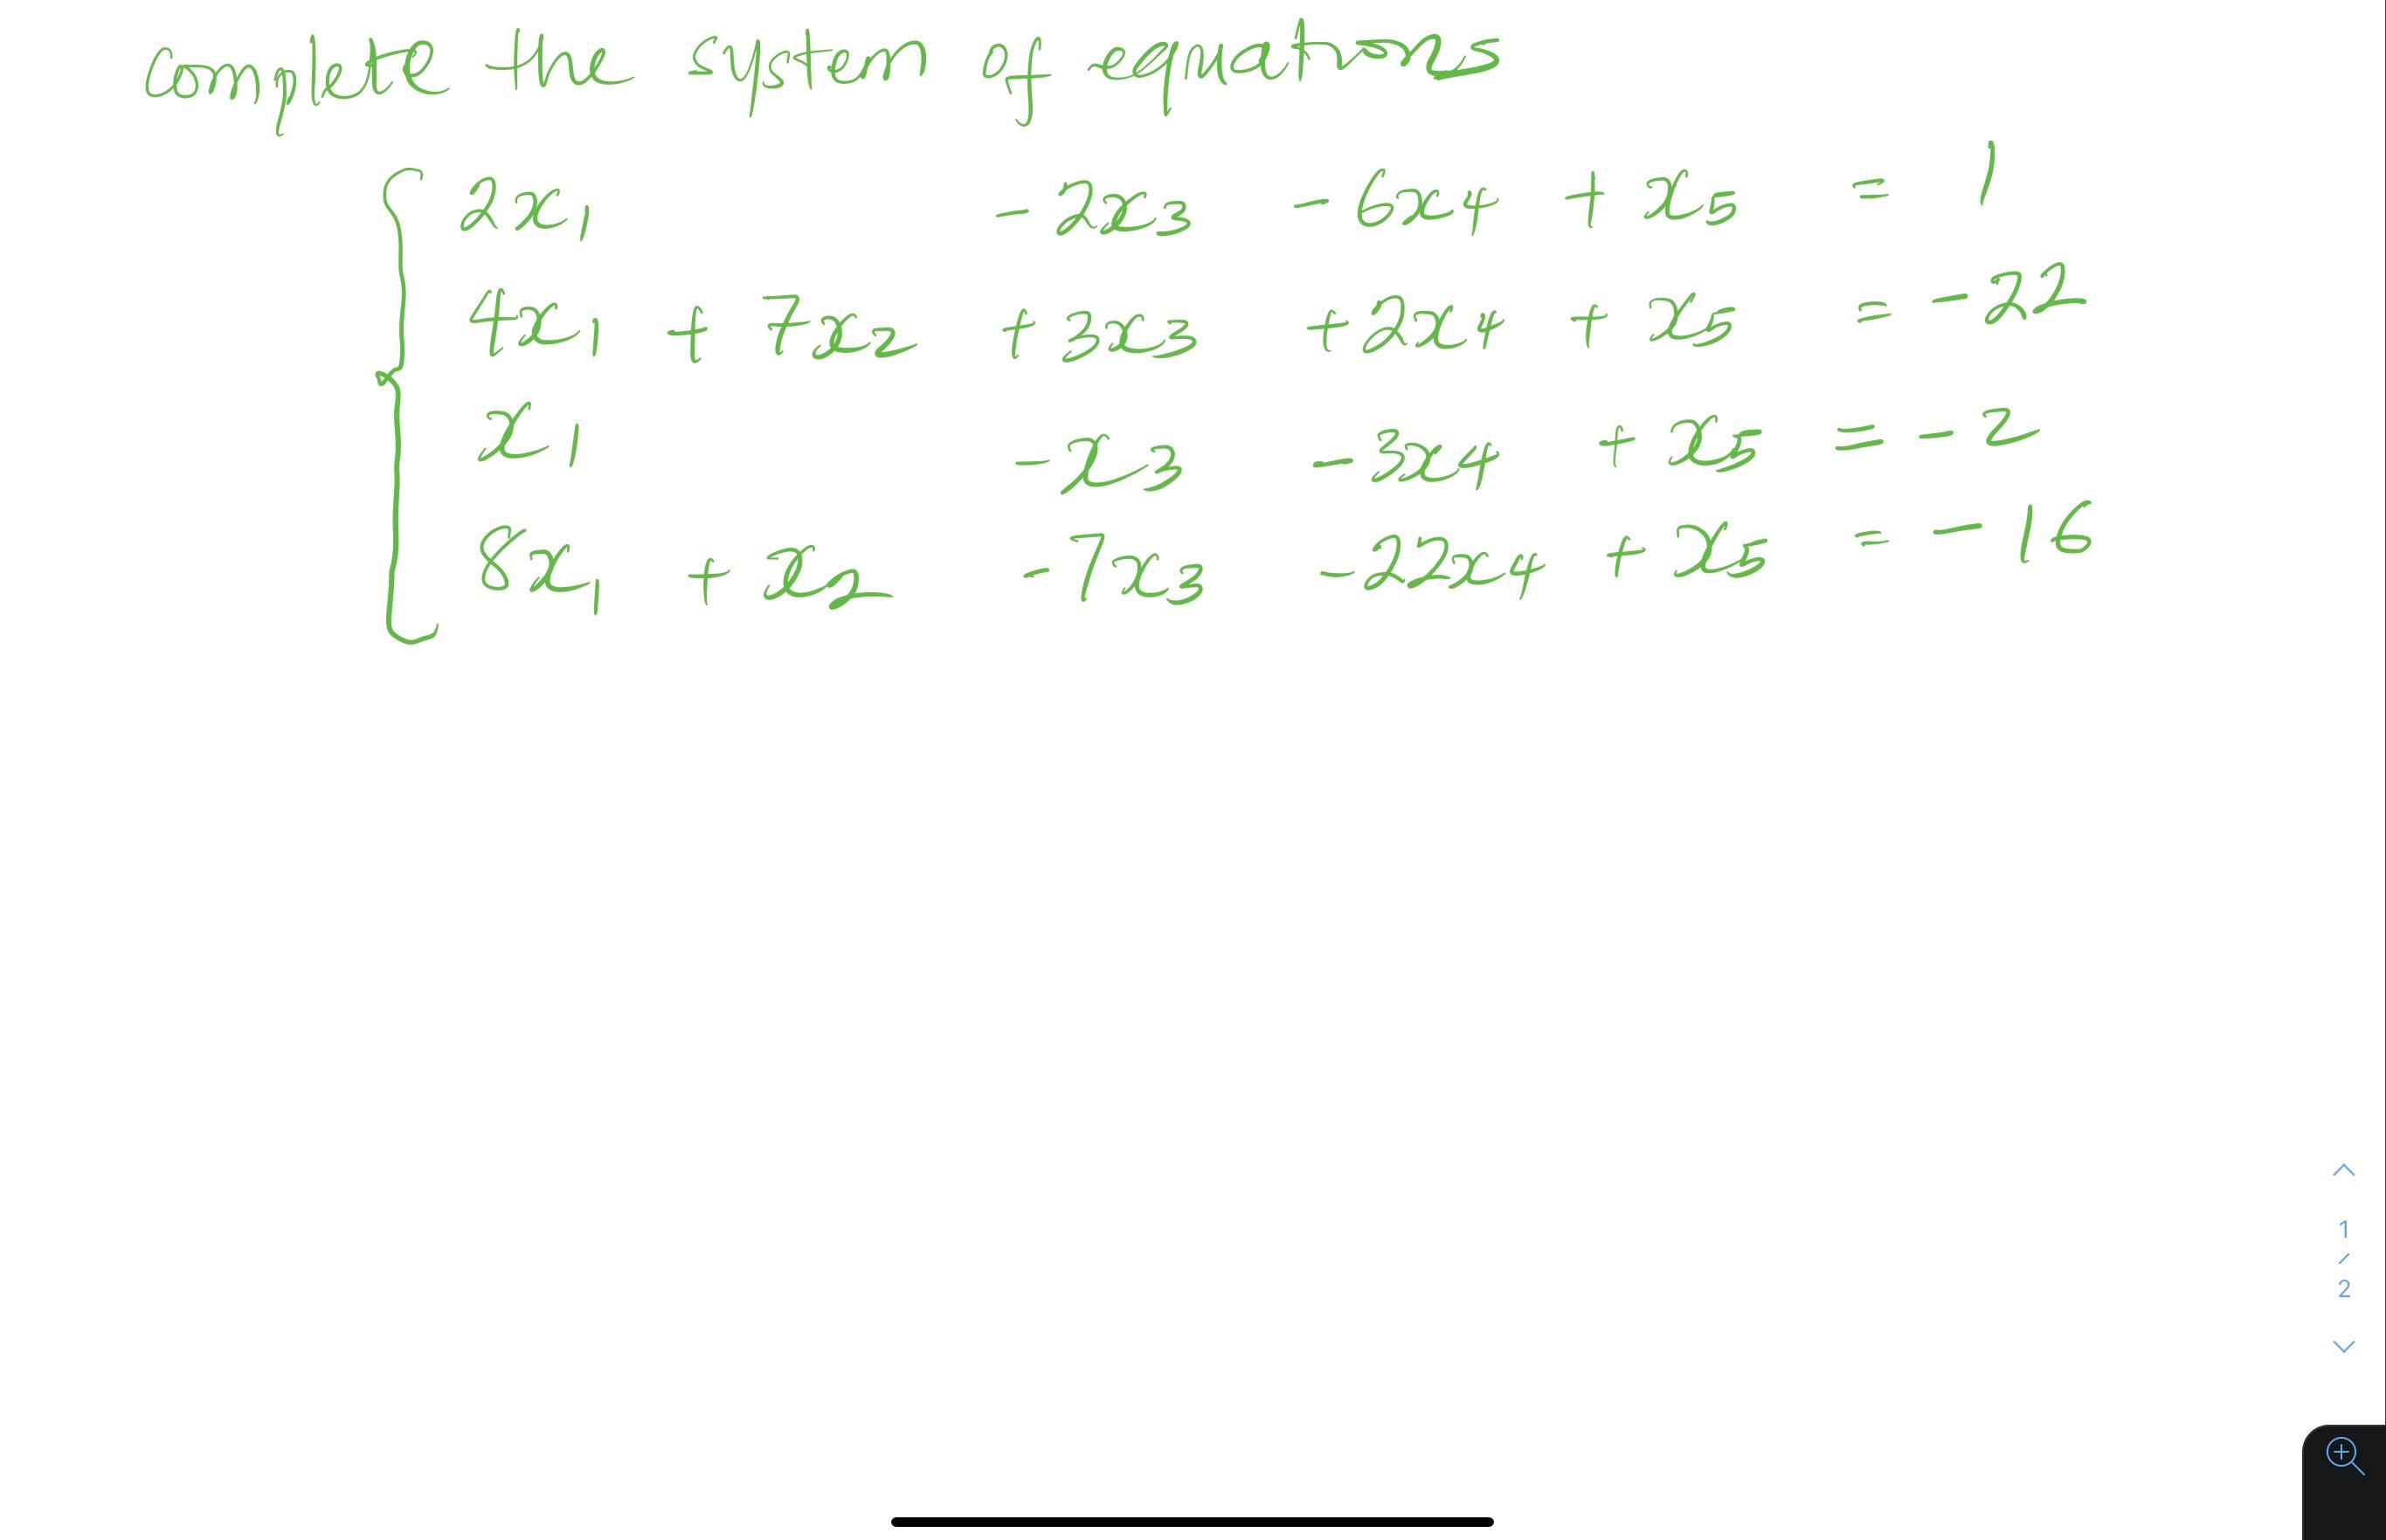 complete the system of equations
2x₁ - 2x₃ - 6x₄ + x₅ = 1
4x₁ + 7x₂ + 3x₃ + 2x₄ + x₅ = -22
x₁ - x₃ - 3x₄ + x₅ = -2
8x₁ + x₂ - 7x₃ - 22x₄ + x₅ = -16
1
/
2